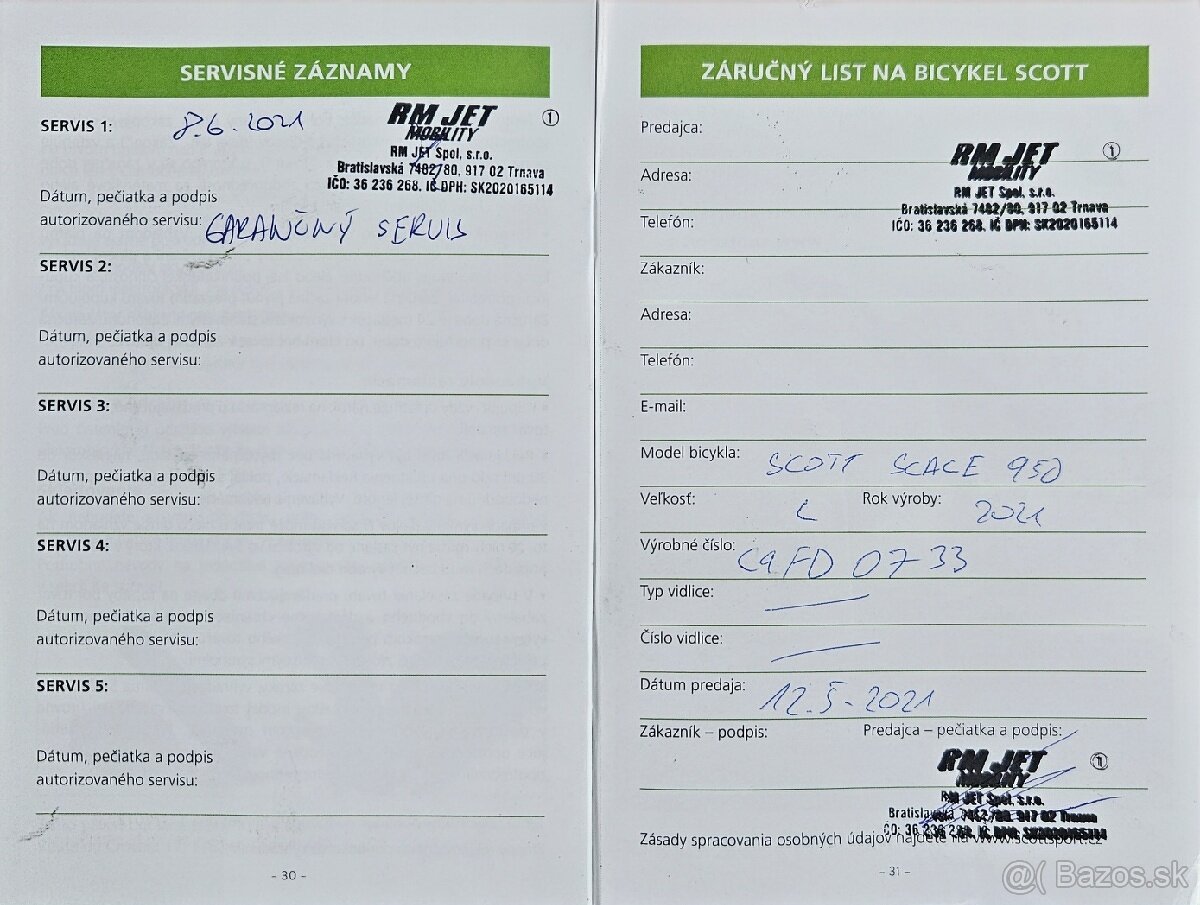 SERVISNÉ ZÁZNAMY
SERVIS 1: 8.6.2021
RM JET ①
MOBILITY
RM JET Spol. s.r.o.
Bratislavská 7482/80, 917 02 Trnava
IČO: 36 236 268, IČ DPH: SK2020165114
Dátum, pečiatka a podpis
autorizovaného servisu: GARANČNÝ SERVIS
SERVIS 2:
Dátum, pečiatka a podpis
autorizovaného servisu:
SERVIS 3:
Dátum, pečiatka a podpis
autorizovaného servisu:
SERVIS 4:
Dátum, pečiatka a podpis
autorizovaného servisu:
SERVIS 5:
Dátum, pečiatka a podpis
autorizovaného servisu:
- 30 -
ZÁRUČNÝ LIST NA BICYKEL SCOTT
Predajca:
RM JET ①
MOBILITY
Adresa:
RM JET Spol. s.r.o.
Bratislavská 7482/80, 917 02 Trnava
Telefón:
IČO: 36 236 268, IČ DPH: SK2020165114
Zákazník:
Adresa:
Telefón:
E-mail:
Model bicykla: SCOTT SCALE 950
Veľkosť: L Rok výroby: 2021
Výrobné číslo: C9FD 0733
Typ vidlice:
Číslo vidlice:
Dátum predaja: 12.5.2021
Zákazník – podpis: Predajca – pečiatka a podpis:
RM JET ①
MOBILITY
RM JET Spol. s.r.o.
Bratislavská 7482/80, 917 02 Trnava
IČO: 36 236 268, IČ DPH: SK2020165114
Zásady spracovania osobných údajov nájdete na www.scottsport.cz
- 31 -
@( Bazos.sk